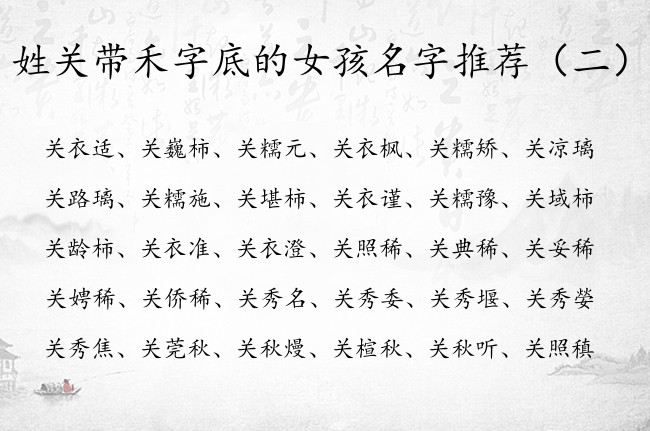 姓关带禾字底的女孩名字推荐（二）
关衣适、关巍柿、关糯元、关衣枫、关糯矫、关凉璃
关路璃、关糯施、关堪柿、关衣谨、关糯豫、关域柿
关龄柿、关衣准、关衣澄、关照稀、关典稀、关妥稀
关娉稀、关侨稀、关秀名、关秀委、关秀堰、关秀嫈
关秀焦、关莞秋、关秋熳、关楦秋、关秋听、关照稹